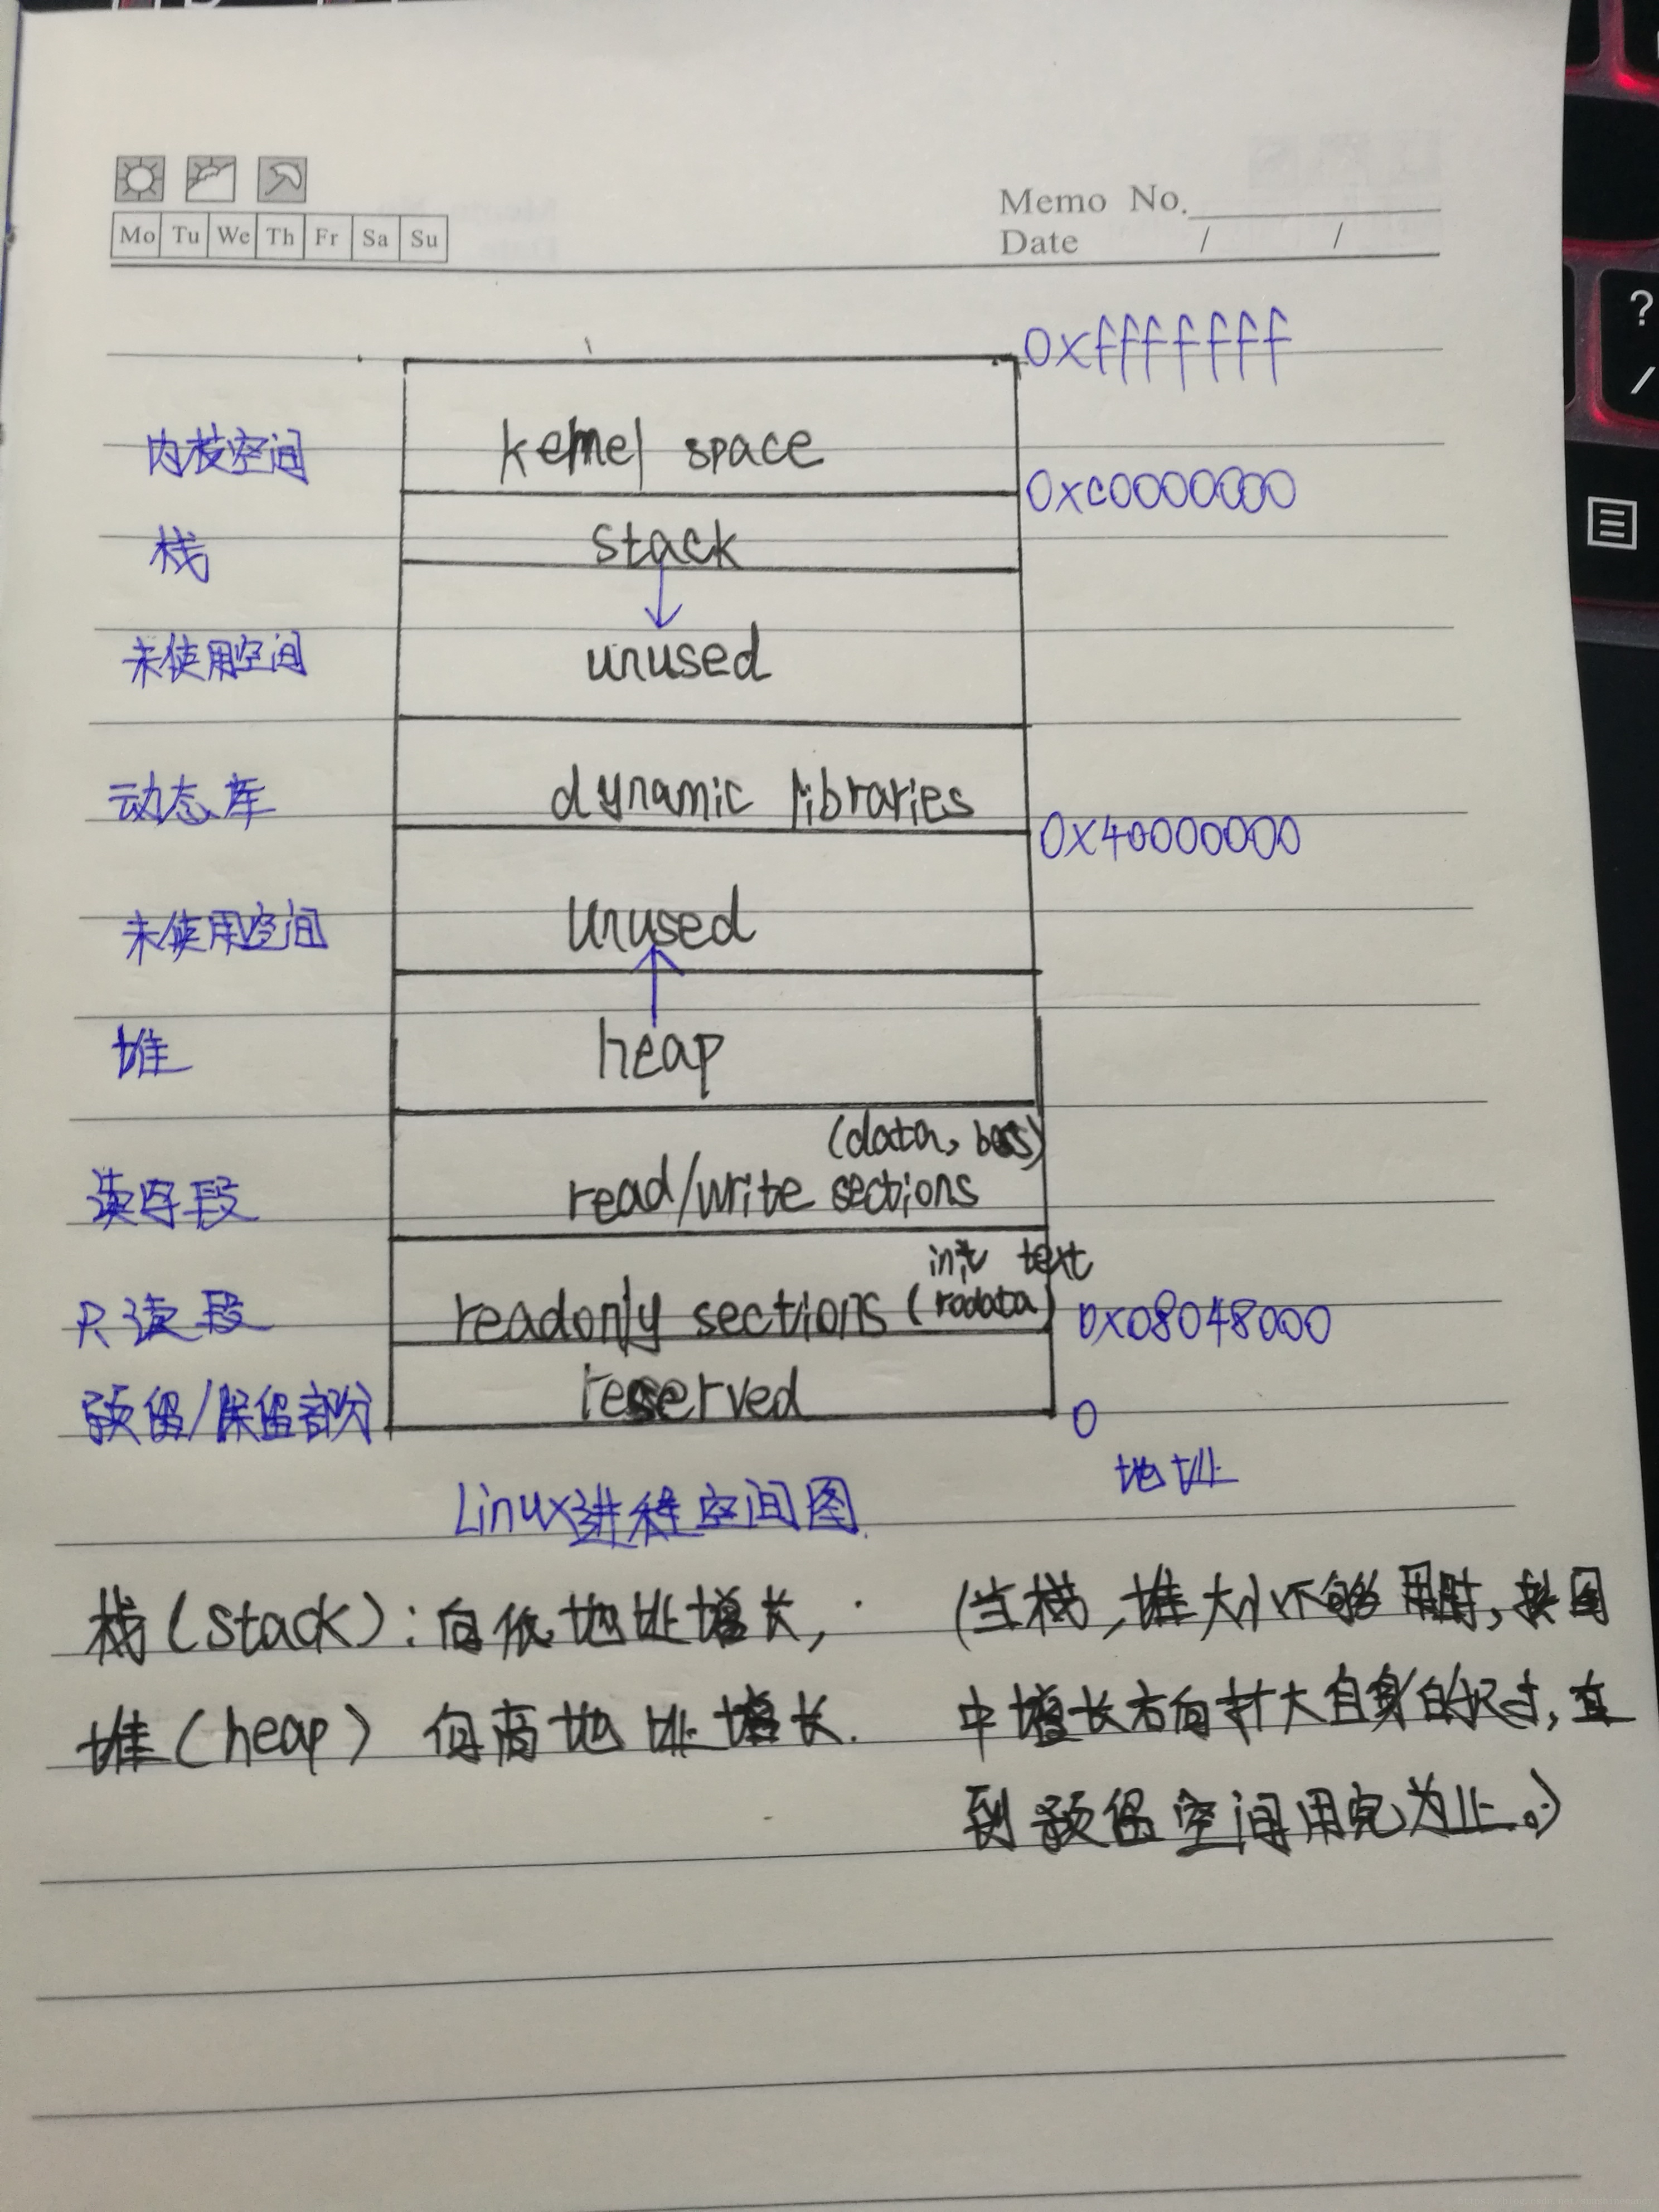 Mo Tu We Th Fr Sa Su
Memo No.
Date / /
0xfffffff
内核空间 kernel space
0xc0000000
栈 stack
未使用空间 unused
动态库 dynamic libraries
0x40000000
未使用空间 unused
堆 heap
(data, bss)
读写段 read/write sections
init text
只读段 readonly sections (rodata) 0x08048000
预留/保留部分 reserved
0
地址
Linux进程空间图.
栈(stack):向低地址增长, (当栈,堆大小不够用时,按图
堆(heap) 向高地址增长. 中增长方向扩大自身的尺寸,直
到预留空间用完为止。)
?
/